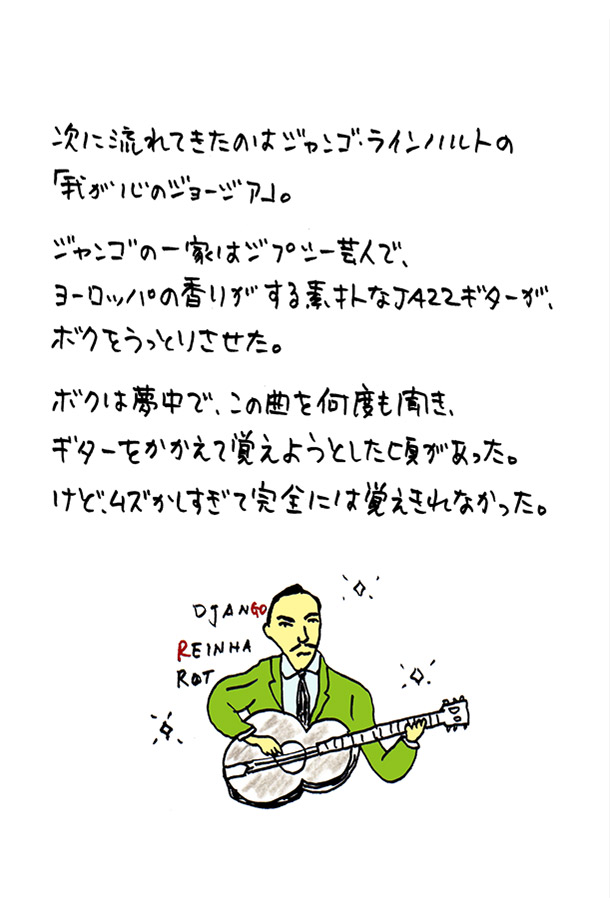 次に流れてきたのはジャンゴ・ラインハルトの
「我が心のジョージア」。
ジャンゴの一家はジプシー芸人で、
ヨーロッパの香りがする素朴なJAZZギターが、
ボクをうっとりさせた。
ボクは夢中で、この曲を何度も聞き、
ギターをかかえて覚えようとした頃があった。
けど、ムズかしすぎて完全には覚えきれなかった。
DJANGO
REINHA
RDT